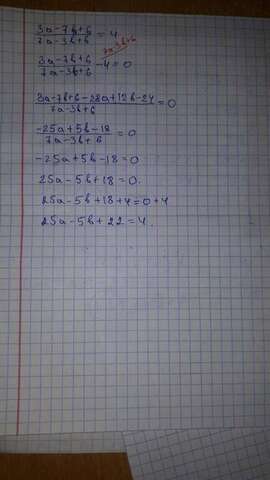 (3a-7b+6)/(7a-3b+6) = 4
7a-3b+6
(3a-7b+6)/(7a-3b+6) - 4 = 0
(3a-7b+6-28a+12b-24)/(7a-3b+6) = 0
(-25a+5b-18)/(7a-3b+6) = 0
-25a+5b-18=0
25a-5b+18=0.
25a-5b+18+4=0+4
25a-5b+22=4.